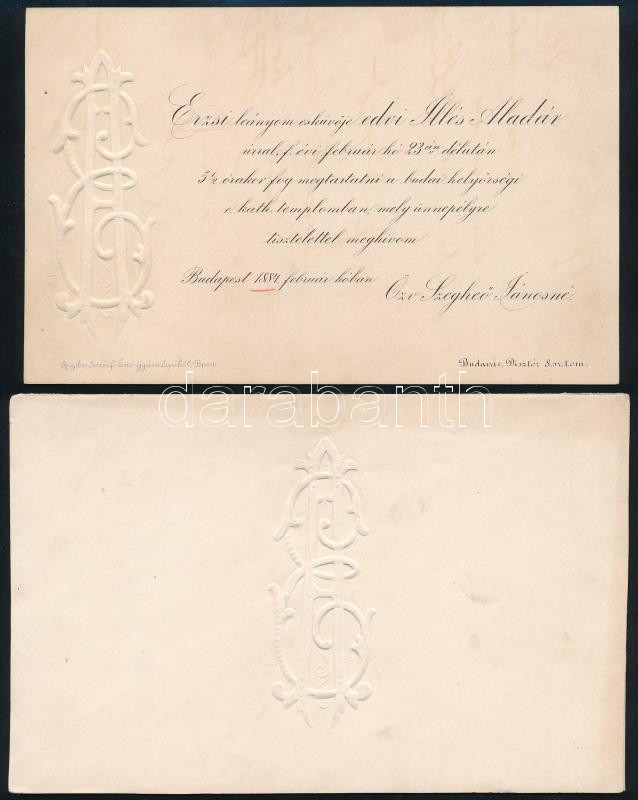 Erzsi leányom esküvője edvi Illés Aladár
úrral, f. évi február hó 23 án délután
5½ órakor fog megtartatni a budai helyőrségi
r. kath. templomban, mely ünnepélyre
tisztelettel meghivom
Budapest 1884. február hóban.
Özv. Szegheő Jánosné.
Rigler József Ede gyártelepéből, Bpest.
Budavár, Disztér 8. sz. I. em.
darabanth